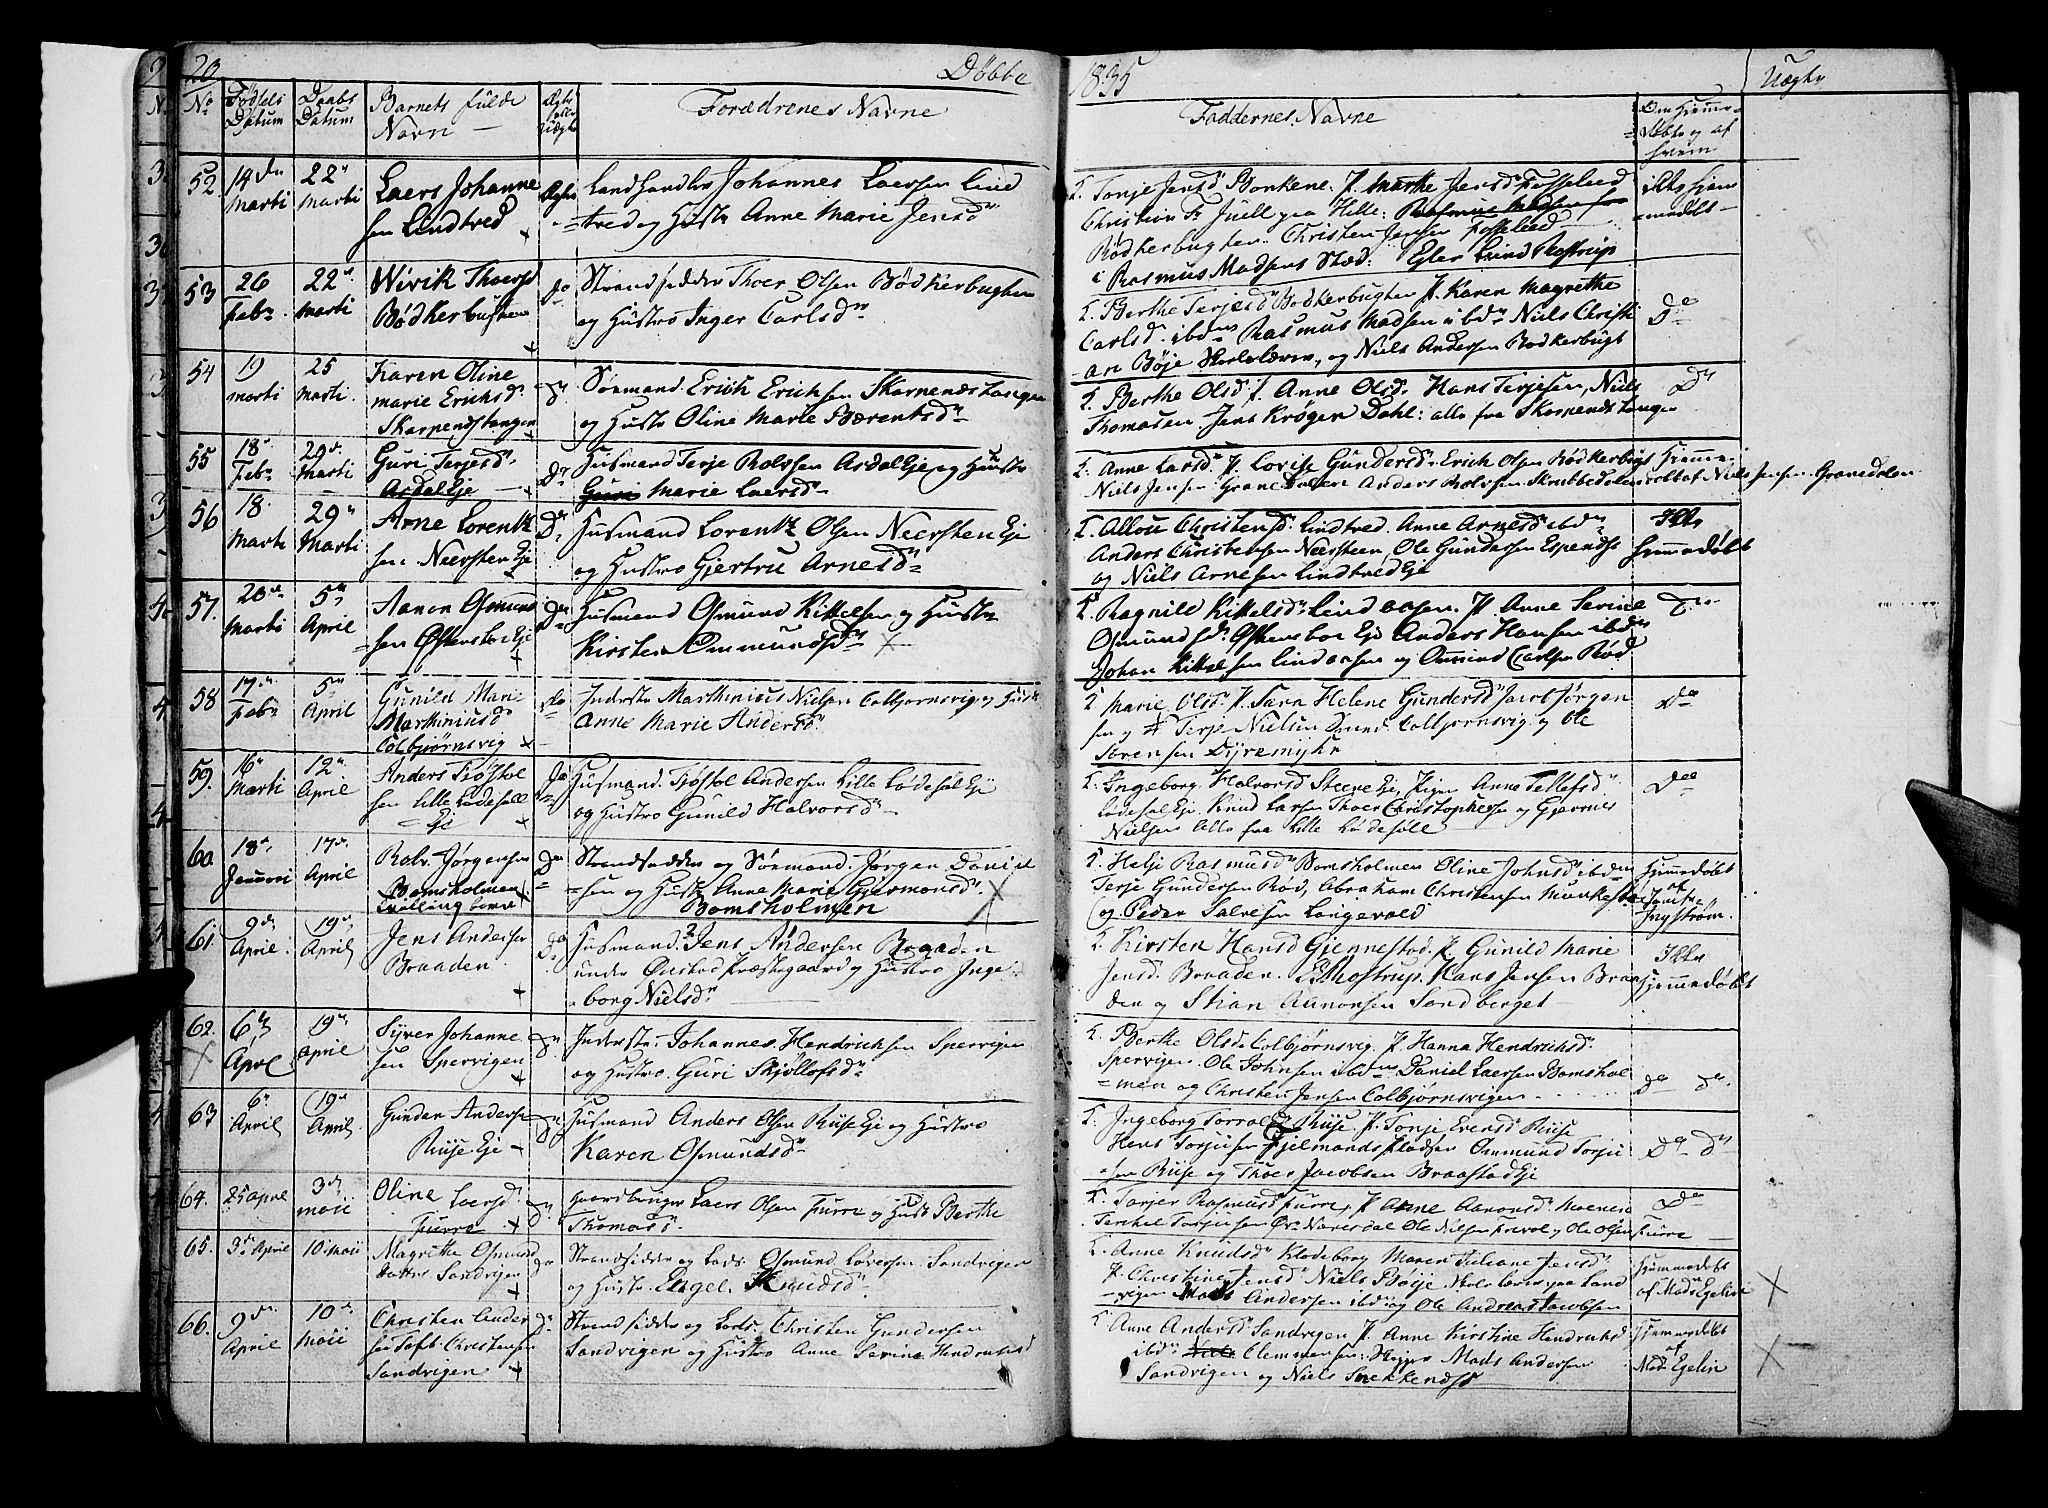 20
Døbte
1835
Uægte
No
Fødsels Datum
Daabs Datum
Barnets fulde Navn
Ægte eller Uægte
Forældrenes Navne
Faddernes Navne
Om Hjemmedøbte og af hvem
52. 14de Marti 22de Marti
Laers Johannesen Lindtved
Ægte
Landhandler Johannes Laersen Lindtved og Hustr Anne Marie Jensd
Tonje Jensd Bonkene P. Marthe Jensd Fosselied
Christian Fr Juell paa Helle: Rasmus Madsen
Bødkerbugten Christen Jensen Fosselied
i Rasmus Madsens Stæd: Eyler Lund Rostrup
53 26 Febr. 22de Marti
Wivik Thoersd Bødkerbugten
do
Strandsidder Thoer Olsen Bødkerbugten
og Hustro Inger Carlsd
Berthe Terjesd Bødkerbugten P. Karen Magrethe
Carlsd ibd Rasmus Madsen ibd Niels Christi
an Bøje Skolelærer, og Niels Andersen Bødkerbugt
Do
54 19 marti 25 Marti
Karen Oline marie Erichsd Skarpenæstangen
Sømand Erich Erichsen Skarpenæstangen
og Hustr Oline Marie Bærentsd
Berthe Olsd P. Anne Olsd Hans Terjesen, Niels
Thomasen Jens Krøger Dahl: alle fra Skarpenæstangen
Do
55 18 Febr 29de Marti
Guri Terjesd Asdal Eje
Do
Husmand Terje Rolfsen Asdal Eje og Hustr
Guri Marie Laersd
Anne Larsd P. Lovise Gundersd Erich Olsen Bødkerbugt
Niels Jensen Granedalen Anders Rolfsen Skrubbedalen
Niels Jensen Granedalen
56 18. Marti 29de Marti
Arne Lorentzsen Neersten Eje
Do
Husmand Lorentz Olsen Neersten Eje
og Hustro Gjertru Arnesd
Christensd Lindtved Anne Arnesd ibd
Anders Christensen Neersteen, Ole Gundersen
og Niels Arnesen Lindtved Eje
Ikke hjemmedøbt
57. 20de Marti 5te April
Aanon Osmundsen Østensboe Eje
Do
Husmand Osmund Kittelsen og Hustr
Kirsten Ommundsd
Ragnild Kittelsd Lindaasen P. Anne Sevine
Osmundsd Østensboe Eje Anders Hansen ibd
Johan Kittelsen Lindaasen og Osmund Carlsen Rød
Do
58 17de Febr 5te April
Gunild Marie Marthiniusd Colbjørnsvig
do
Inderste Marthinius Nielsen Colbjørnsvig og Hustr
Anne Marie Andersd
Marie Olsd P. Sara Helene Gundersd Jacob Jørgensen
Terje Nielsen Colbjørnsvig og Ole
Sørensen Dyremyhr
Do
59. 16de Marti 12te April
Anders Tjøstolsen lille Lødesøll Eje
do
Husmand Tjøstol Andersen Lille Lødesøl Eje
og Hustro Gunild Halvorsd
Ingeborg Halvorsd Steene Eje, Pigen Anne Tellefsd
Lødesøl Eje Knud Larsen Thoer Christophersen og Gjermes
Nielsen Alle fra Lille Lødesøll
Do
60. 18de Januari 17de April
Rolv Jørgensen Bomsholmen
Do
Strandsidder og Sømand Jørgen Danielsen og Hustr Anne Marie Gjermonsd
Bomsholmen
Helje Rasmusd Bomsholmen Oline Johnsd ibd
Terje Gundersen Rød, Abraham Christensen
og Peder Salvesen Langevold
Hjemmedøbt af Jomfr Ingstrøm
61. 9de April 19de April
Jens Andersen Braaden
do
Husmand Jens Andersen Braaden
under Øiestad Præstegaard og Hustro Ingeborg Nielsd
Kirsten Hansd Gjennestad P. Gunild Marie
Jensd Braaden E. Rostrup. Hans Jensen Braaden
og Stian Aanonsen Sandberget
Ikke hjemmedøbt
62. 6te Aprl 19de April
Syver Johannesen Spervigen
Do
Inderste Johannes Hendrichsen Spervigen
og Hustro Guri Skjøllofsd
Berthe Olsd Colbjørnsvig P. Hanna Hendrichsd
Spervigen Ole Johnsen ibd Daniel Laersen Bomsholmen og Christen Jensen Colbjørnsvigen
Do Do
63 6te April 19de April
Gunder Andersen Riise Eje
Do
Husmand Anders Olsen Riise Eje og Hustro
Karen Osmundsd
Ingeborg Torvalsd Riise P. Tonje Evensd Riise
Hans Torjusen Fjelmandspladsen Ommund Torjusen Riise og Thoer Jacobsen Braastad Eje
Do Do
64. 25 apri 3de maii
Oline Laersd Furre
Do
Gaardbruger Laers Olsen Furre og Hust Berthe
Thomasd
Torjer Rasmusd Furre, P. Anne Aanonsd
Terkel Torjusen Ole Nielsen og Ole Olsen Furre
Do
65. 3de April 10 maii
Magrethe Osmundsdatter Sandvigen
do
Strandsidder og Lods Osmund Laversen Sandvigen
og Hustr Engel Knudsd
Anne Knudsd Kladeborg Maren Juliane Jensd
P. Christine Jensd Niels Bøije Skolelærer paa Sandvigen Mads Andersen ibd og Ole Andreas Jacobsen
Hjemmedøbt af Mad Egelin
66. 9de April 10de Maii
Christen Andersen Toft Christensen Sandvigen
Do
Strandsidder og Lods Christen Gundersen
Sandvigen og Hustro Anne Sevine Hendrichsd
Anne Andersd Sandvigen P. Anne Kirstine Hendrichsd
ibd Clemmensen: Mads Andersen
Sandvigen og Niels Snekkenæs
Hjemmedøbt af Mad Egelin